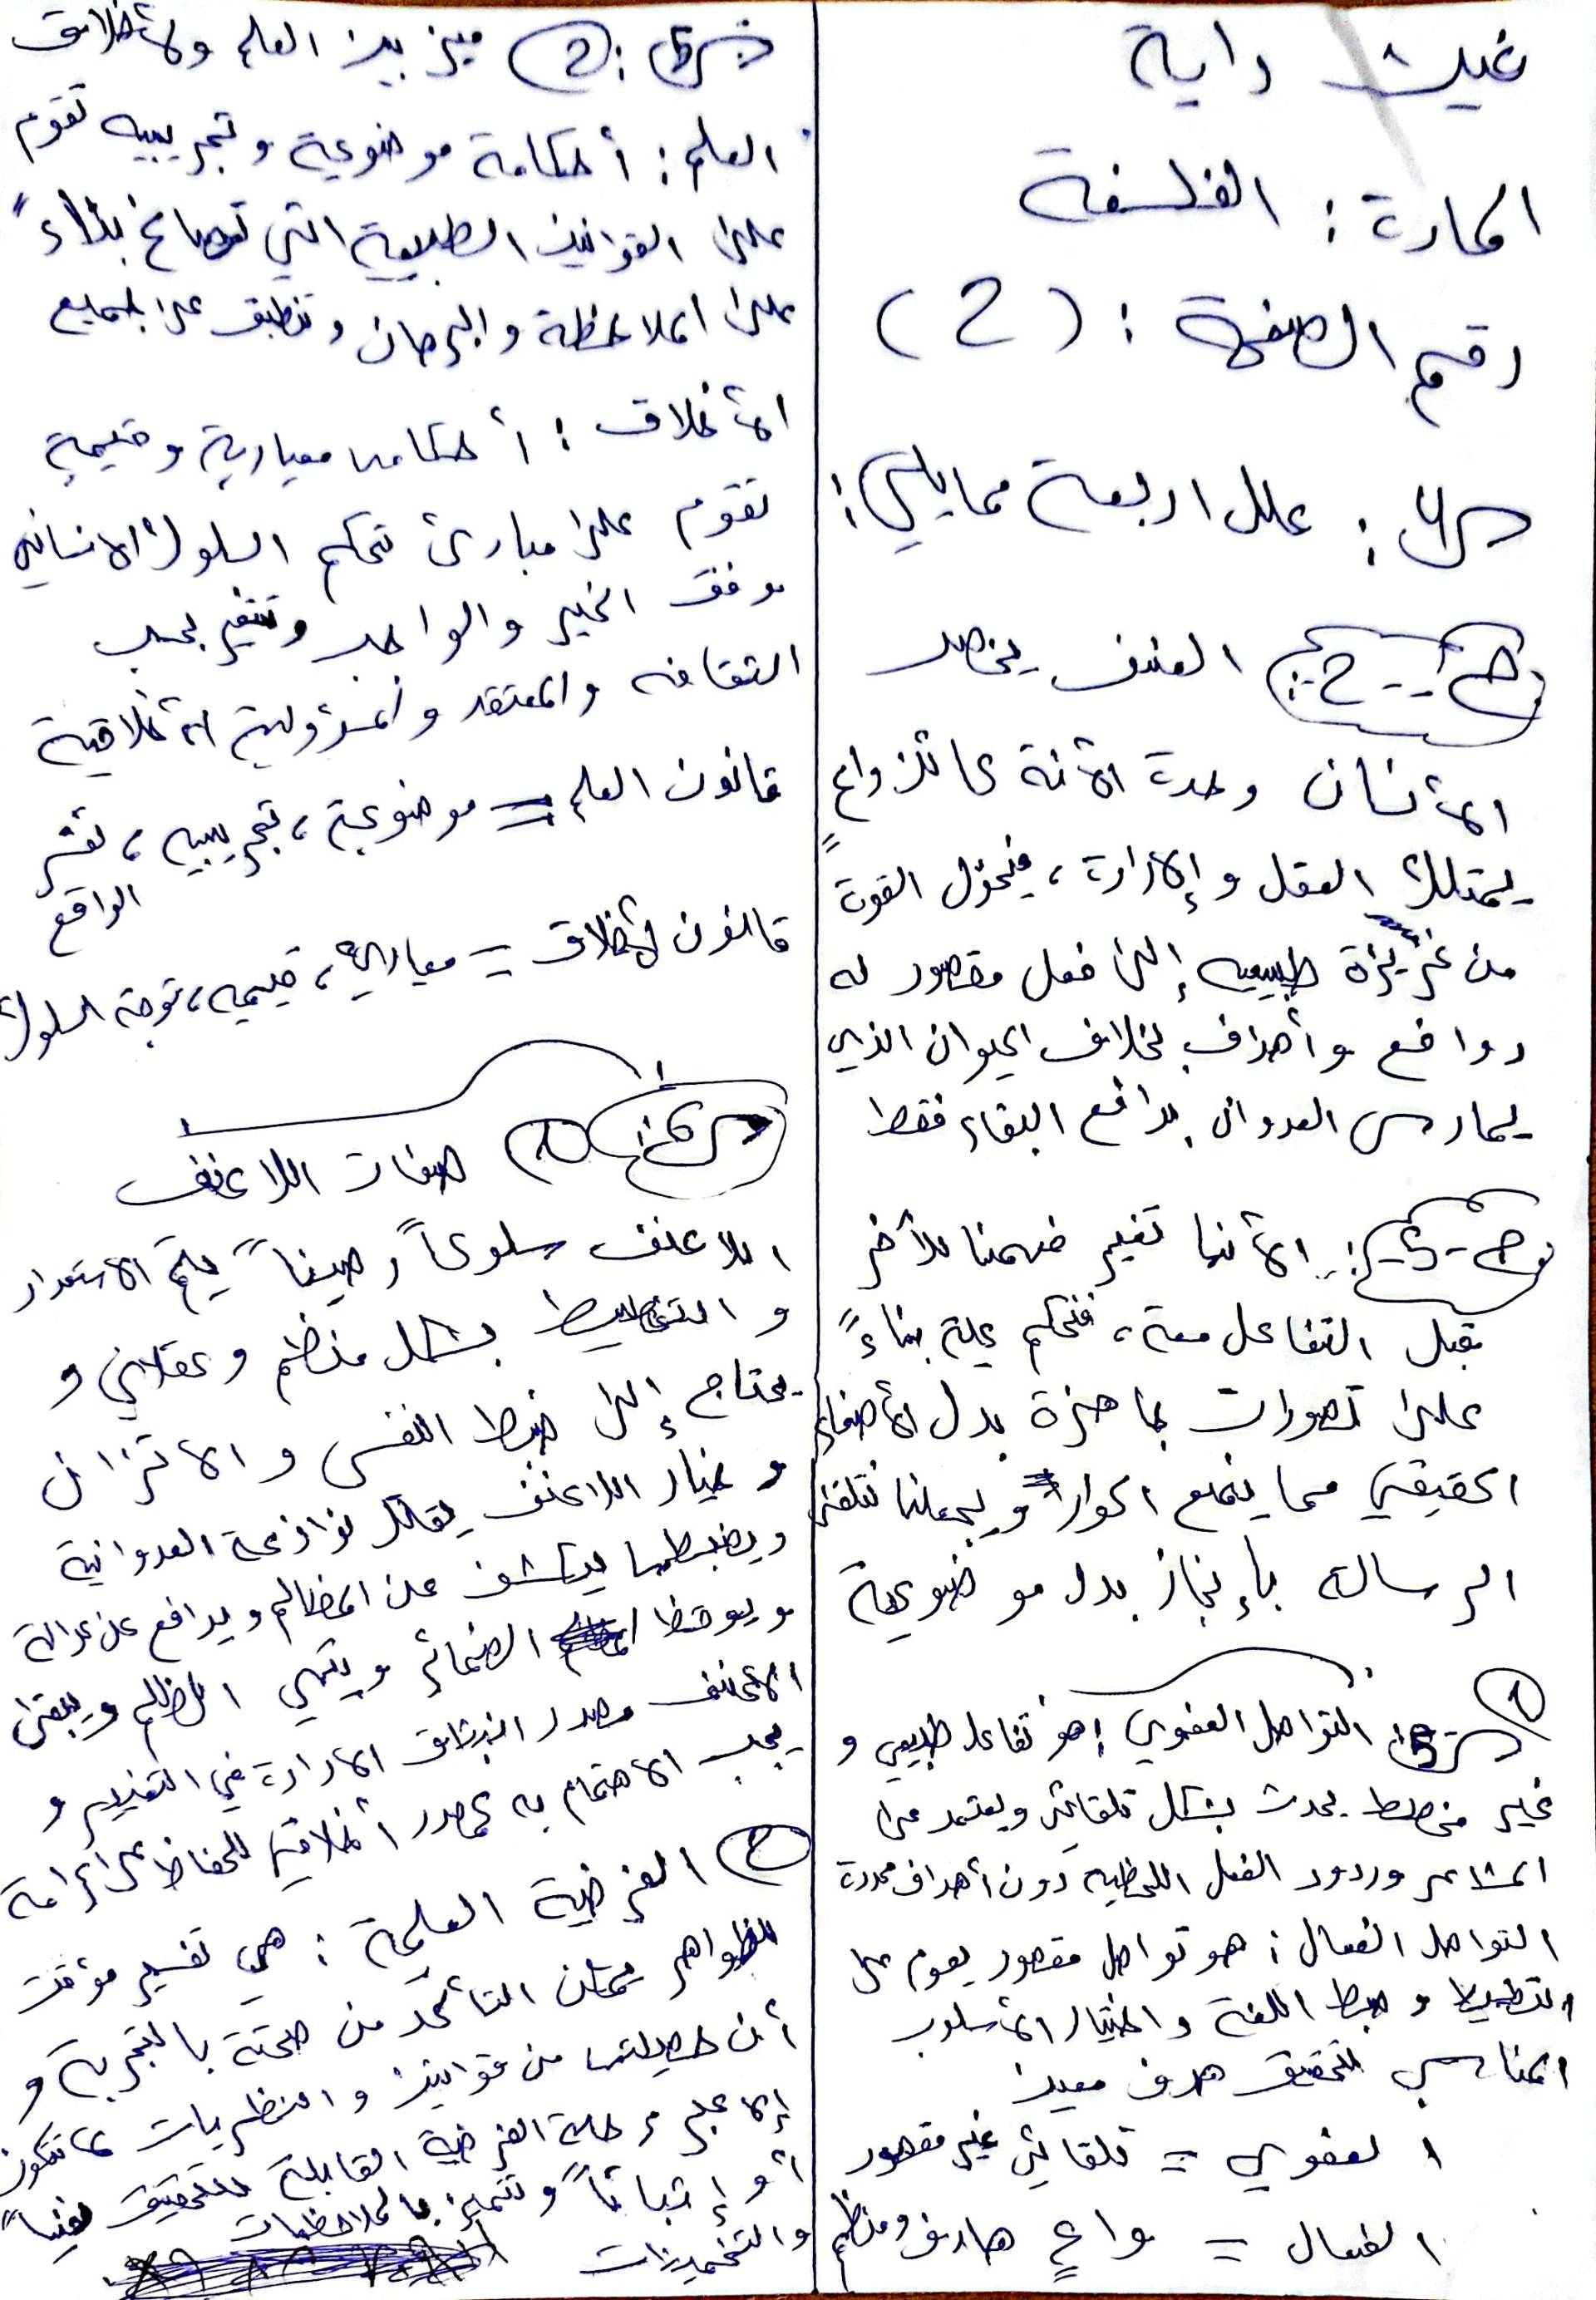 غيث داية
المادة : الفلسفة
رقم الصفحة : (2)
س4 : علل اربعة مما يلي :
ج أ - 2 : العنف يخص
الأنسان وحدة لأنة كائن واعٍ
يمتلك العقل و الإرادة ، فيحوّل القوة
من غريزة طبيعيه إلى فعل مقصود له
دوافع وأهداف بخلاف الحيوان الذي
يمارس العدوان بدافع البقاء فقط
ج - 5 : لأنها تغير فهمنا للأخر
قبل التفاعل معة ، فنحكم علية بناءً
على تصورات جاهزة بدل الأصغاء
الحقيقي مما يمنع الحوار ويجعلنا نتلقى
الرسالة بإنحاز بدل موضوعية
س5 : 1 التواصل العفوي : هو تفاعل طبيعي و
غير مخطط يحدث بشكل تلقائي ويعتمد على
المشاعر وردود الفعل اللحظيه دون أهداف محددة
التواصل الفعال : هو تواصل مقصود يقوم على
التخطيط و ضبط اللغة و اختيار الأسلوب
المناسب لتحقيق هدف معين
العفوي = تلقائي غير مقصود
الفعال = واعٍ هادف ومنظم
س5 : 2 ميز بين العلم والأخلاق
العلم : أحكامة موضوعية وتجريبيه تقوم
على القوانين الطبيعية التي تصاغ بناءً
على الملاحظة والبرهان وتنطبق على الجميع
الأخلاق : أحكامه معيارية وقيمية
تقوم على مبادئ تحكم السلوك الانساني
وفق الخير والواجب وتتغير بحسب
الثقافه والمعتقد والمسؤولية الأخلاقية
قانون العلم = موضوعية ، تجريبيه ، تفسّر
الواقع
قانون الأخلاق = معياريه ، قيميه ، توجة السلوك
س6 : 1 صفات اللاعنف
اللاعنف سلوكاً رصيناً يتم الاستعداد
و التخطيط بشكل منظم و عقلاني و
يحتاج إلى ضبط النفس و الاتزان
و خيار اللاعنف يقلل نوازعة العدوانية
ويضبطها يكشف عن المظالم ويدافع عن عدالة
و يوقظ الضمائر وينهي الظلم ويبقى
الاعنف مصدر انبثاق الأرادة في التغيير و
يجب الاهتمام به كمصدر أخلاقي للحفاظ على كرامة
2 الفرضية العلمية : هي تفسير مؤقت
لظواهر يمكن التأكد من صحتة بالتجربة و
أن حصيلتها من قوانين والنظريات ما تتكون
إلا عبر مرحلة الفرضية القابلة للتحقيق نفياً
أو إثباتاً وتتميز بالملاحظات
والتخمينات